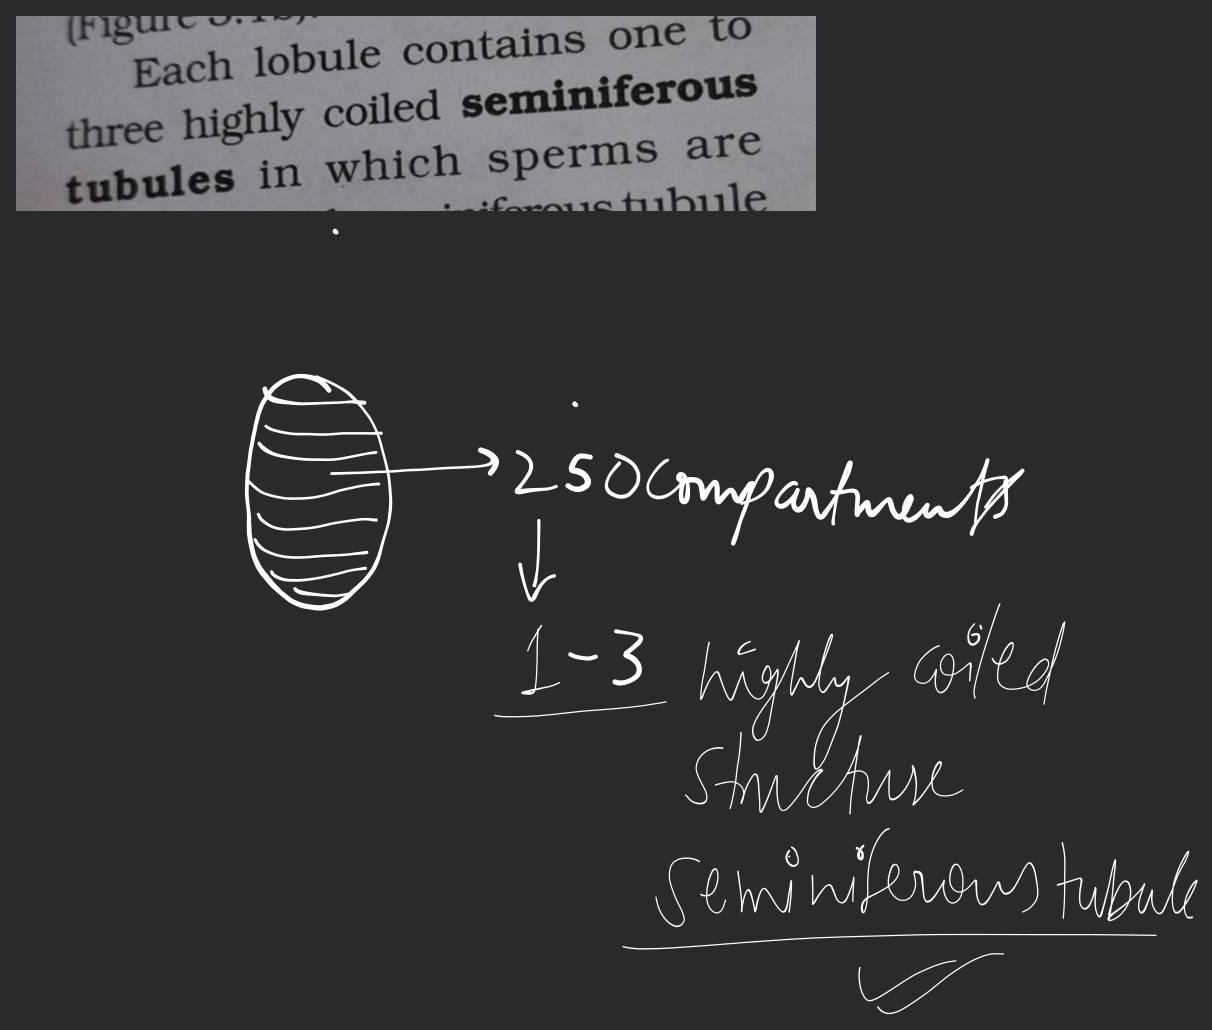 Each lobule contains one to
three highly coiled seminiferous
tubules in which sperms are
250 compartments
1-3 highly coiled
structure
seminiferous tubule